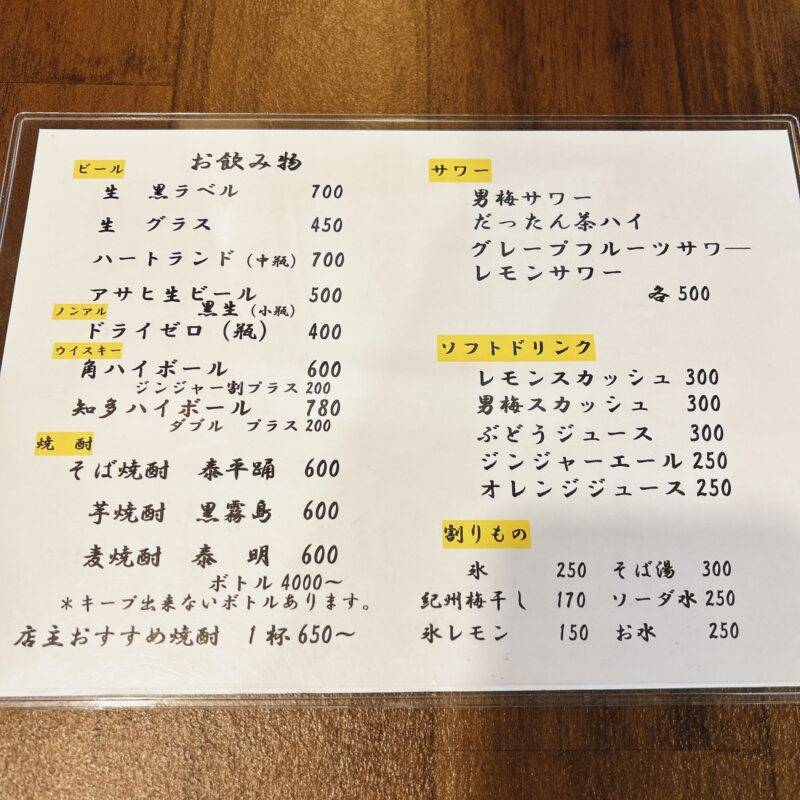 お飲み物
ビール
生 黒ラベル 700
生 グラス 450
ハートランド (中瓶) 700
アサヒ生ビール 500
黒生 (小瓶)
ノンアル
ドライゼロ (瓶) 400
ウイスキー
角ハイボール 600
ジンジャー割プラス 200
知多ハイボール 780
ダブル プラス 200
焼 酎
そば焼酎 泰平踊 600
芋焼酎 黒霧島 600
麦焼酎 泰 明 600
ボトル 4000〜
*キープ出来ないボトルあります。
店主おすすめ焼酎 1杯 650〜
サワー
男梅サワー
だったん茶ハイ
グレープフルーツサワー
レモンサワー
各 500
ソフトドリンク
レモンスカッシュ 300
男梅スカッシュ 300
ぶどうジュース 300
ジンジャーエール 250
オレンジジュース 250
割りもの
氷 250 そば湯 300
紀州梅干し 170 ソーダ水 250
氷レモン 150 お水 250